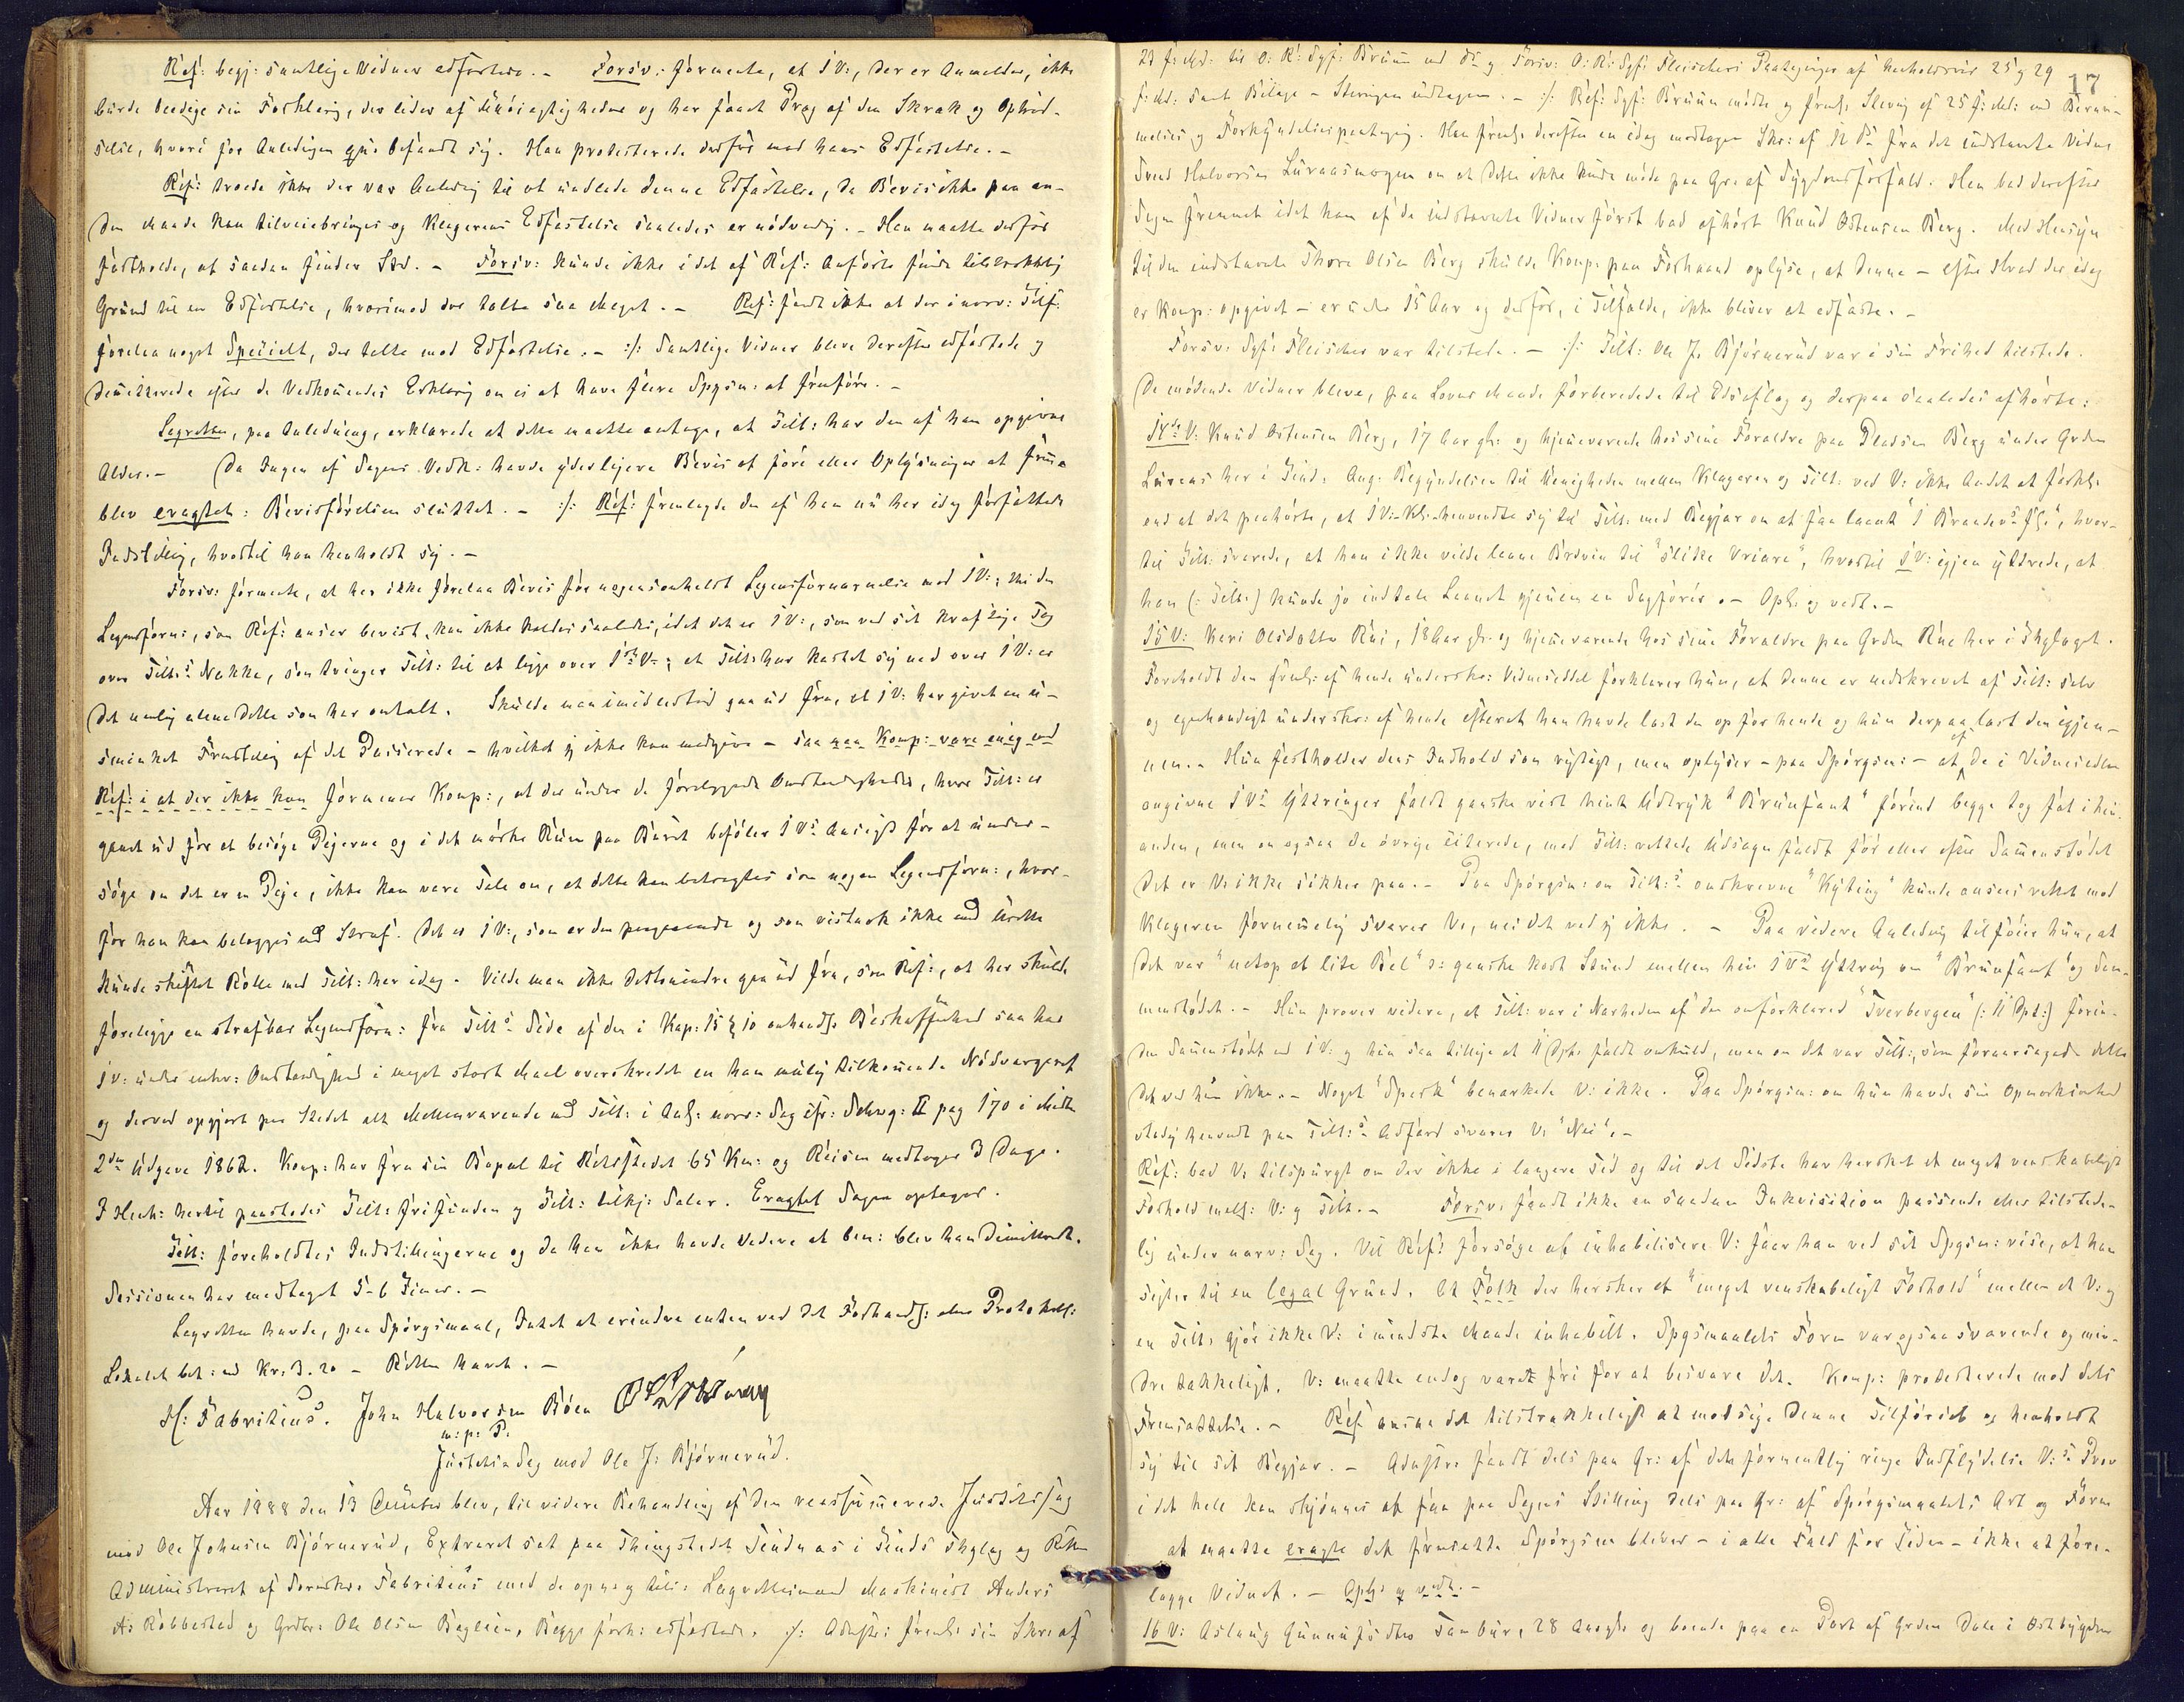 Ref: begj: samtlige Vidner edfæstede. – Forsv: formente, at 1 V:, der er Anmelder, ikke
burde beedige sin Forklaring, der lider af Unøiagtigheder og har faaet Præg af den Skræk og Ophid-
selse, hvori for Anledigen befandt sig. Han protesterede derfor mod hans Edfæstelse. –
Ref: troede ikke der var Anledng til at undlade denne Edfæstelse, da Bevis ikke paa an-
den Maade kan tilveiebringes og Klagerens Edfæstelse saaledes er nødvendig. – Han maatte derfor
fastholde, at saadan finder Sted. – Forsv: kunde ikke i det af Ref: Anførte finde tilstrækkelig
Grund til en Edfæstelse, hvorimod der talte saa Meget. – Ref: fandt ikke at der i nærv: Tilf:
forelaa noget Specielt, der talte mod Edfæstelse. – :/: Samtlige Vidner bleve derefter edfæstede og
dimitterede efter de Vedkommendes Erklæring om ei at have flere Spgsm: at fremføre. –
Lagretten, paa Anledning, erklærede at dette maatte antage, at Tilt: har den af ham opgivne
Alder. – Da Ingen af Sagens Vedk: havde yderligere Bevis at føre eller Oplysninger at frem-
blev eragtet: Bevisførelsen sluttet. – :/: Ref: fremlagde den af ham nu her idag forfattede
Indstilling, hvortil han henholdt sig. –
Forsv: formente, at her ikke forelaa Bevis for nogensomhelst Legemsfornærmelse mod 1 V:; thi den
Legemsforn:, som Ref: anser bevist, kan ikke kaldes saaledes, idet det er 1 V:, som ved sit kraftige Tag
over Tilt:s Nakke, som tvinger Tilt: til at ligge over 1ste V:; at Tilt: har kastet sig ned over 1 V: er
det nemlig alene dette som har omtalt. Skulde man imidlertid gaa ud fra, at 1 V: har givet en u-
sminket Fremstilling af det Passerede – hvilket jeg ikke kan medgive – saa maa Komp: være enig med
Ref: i at der ikke kan formener Komp:, at der under de foreliggende Omstændigheder, hvor Tilt: er
gaaet ud for at besøge Pigerne og i det mørke Rum paa Buret beføler 1 V:s Ansigt for at under-
søge om det er en Pige, ikke kan være Tale om, at dette kan betragtes som nogen Legemsforn:, hvor-
for han kan belægges med Straf. Det er 1 V:, som er den paagaaende og som vistnok ikke med Urette
kunde skiftet Rolle med Tilt: her idag. Vilde man ikke destomindre gaa ud fra, som Ref:, at her skulde
foreligge en strafbar Legemsforn: fra Tilt:s Side af den i Kap: 15 § 10 omhandl: Beskaffenhed saa har
1 V: under enhv: Omstændighed i meget stort Maal overskredet en ham mulig tilkommende Nødværgeret
og derved opgjort paa Stedet alt Mellemværende med Tilt: i Anl: nærv: Sag cfr: Schwg: II pag 170 i Midten
2den Udgave 1862. Komp: har fra sin Bopæl til Retsstedet 65 Km: og Reisen medtager 3 Dage.
I Henh: hertil paastodes Tilt: frifunden og Tilt: tilkj: Salær. Eragtet Sagen optages.
Tilt: foreholdtes Indstillingerne og da han ikke havde Videre at bem: blev han dimitteret.
Sessionen har medtaget 5–6 Timer. –
Lagretten havde, paa Spørgsmaal, Intet at erindre enten ved det Forhandl: eller Protokoll:
Lokalet bet: med Kr. 3.20 – Retten hævet. –
H: Fabritius. John Halvorsen Bøen
m: p: P.
Justits-Sag mod Ole J: Bjørnerud.
Aar 1888 den 13 December blev, til videre Behandling af den reassumerede Justitssag
mod Ole Johnsen Bjørnerud, Extraret sat paa Thingstedet Tindnes i Tinds Thglag og Retten
administreret af Sorenskr: Fabritius med de opn: og tils: Lagrettesmænd Maskinist Anders
A: Kobberstad og Grdbr: Ole Olsen Bøgleien, Begge forh: edfæstede. :/: Adm: freml: sin Skr: af
17
23 f: Md: til O: R: Sgf: Bruun med Ds og Forsv: O: R: Sgf: Fleischers Paategninger af henholdsvis 25 og 29
f: Md: samt Bilage – Stevningen undtagen. – :/: Ref: Sgf: Bruun mødte og freml: Stevng af 25 f: Md: med Beram-
melses og Forkyndelsespaategng. Han freml: derefter en idag modtagen Skr: af 12 Ds fra det indstævnte Vidne
Svend Halvorsen Luraasmogen om at dette ikke kunde møde paa Gr: af Sygdomsforfald. Han bad derefter
Sagen fremmet idet han af de indstævnte Vidner først bad afhørt Knud Østensen Berg. Med Hensyn
til den indstævnte Thore Olsen Berg skulde Komp: paa Forhaand oplyse, at denne – efter Hvad der idag
er Komp: opgivet – er under 15 Aar og derfor, i Tilfælde, ikke bliver at edfæste. –
Forsv: Sgf: Fleischer var tilstede. – :/: Tilt: Ole J: Bjørnerud var i sin Frihed tilstede.
De mødende Vidner bleve, paa Lovens Maade forberedede til Edsaflæg og derpaa saaledes afhørte:
14de V: Knud Østensen Berg, 17 Aar gl: og hjemmeværende hos sine Forældre paa Pladsen Berg under Grden
Luraas her i Tind. Ang: Begyndelsen til Uenigheden mellem Klageren og Tilt: ved V: ikke Andet at forkl:
end at det paahørte, at 1 V: – Kl: – henvendte sig til Tilt: med Begjær om at faa laant "1 Brændevsfl:", hvor-
til Tilt: svarede, at han ikke vilde laane Brdvin til "slike Uviare", hvortil 1 V: igjen yttrede, at
han (: Tilt:) kunde jo indtale Laanet gjennem en Sagfører. – Opl: og vedt. –
15 V: Kari Olsdatter Rui, 18 Aar gl: og hjemmeværende hos sine Forældre paa Grden Rue her i Thglaget.
Foreholdt den freml: af hende underskr: Vidneseddel forklarer hun, at denne er nedskrevet af Tilt: selv
og egenhændigt underskr: af hende efterat han havde læst den op for hende og hun derpaa læst den igjen-
nem. – Hun fastholder dens Indhold som rigtigt, men oplyser – paa Spørgsm: – at af de i Vidnesedlen
angivne 1 V:s Yttringer faldt ganske vist hint Udtryk "Brunfant" førend begge tog fat i hin-
anden, men om ogsaa de øvrige citerede, mod Tilt: rettede Udsagn faldt før eller efter Sammenstødet
det er V: ikke sikker paa. – Paa Spørgsm: om Tilt:s omskrevne "Kyting" kunde ansees rettet mod
Klageren fornemmelig svarer V:, nei det ved jeg ikke. – Paa videre Anledng tilføier hun, at
det var "netop et lite Bel" ɔ: ganske kort Stund mellem hin 1 V:s Yttring om "Brunfant" og Sam-
menstødet. – Hun prover videre, at Tilt: var i Nærheden af den omforklared "Tverbergen" (: 11 Dpt:) forin-
den Sammenstødet med 1 V: og hun saa tillige at 11 Dpt: faldt omkuld, men om det var Tilt:, som foraarsagede dette
det ved hun ikke. – Noget "Spark" bemærkede V: ikke. Paa Spørgsm: om hun havde sin Opmærksomhed
stadig henvendt paa Tilt:s Adfærd svarer V: "Nei". –
Ref: bad V: tilspurgt om der ikke i længere Tid og til det Sidste har hersket et meget venskabeligt
Forhold mell: V: og Tilt: – Forsv: fandt ikke en saadan Inkvisition passende eller tilstede-
lig under nærv: Sag. Vil Ref: forsøge at inhabilisere V: faar han ved sit Spgsm: vise, at han
sigter til en legal Grund. At Folk der hersker et "meget venskabeligt Forhold" mellem et V: og
en Tilt: gjør ikke V: i mindste Maade inhabilt. Spgsmaalets Form var ogsaa svævende og min-
dre tækkeligt. V: maatte endog være fri for at besvare det. Komp: protesterede mod dets
Fremsættelse. – Ref: ansaa det tilstrækkeligt at modsige denne Tilførsel og henholdt
sig til sit Begjær. – Adm: fandt dels paa Gr: af den formentlig ringe Indflydelse V:s Prov
i det hele kan skjønnes at faa paa Sagens Stilling dels paa Gr: af Spørgsmaalets Art og Form
at maatte eragte det fremsatte Spørgsm bliver – i alle Fald for Tiden – ikke at fore-
lægge Vidnet. – Opl: og vedt. –
16 V: Aslaug Gunnufsdtr Tambur, 28 Aar gl: og boende paa en Part af Grden Dale i Østbygden